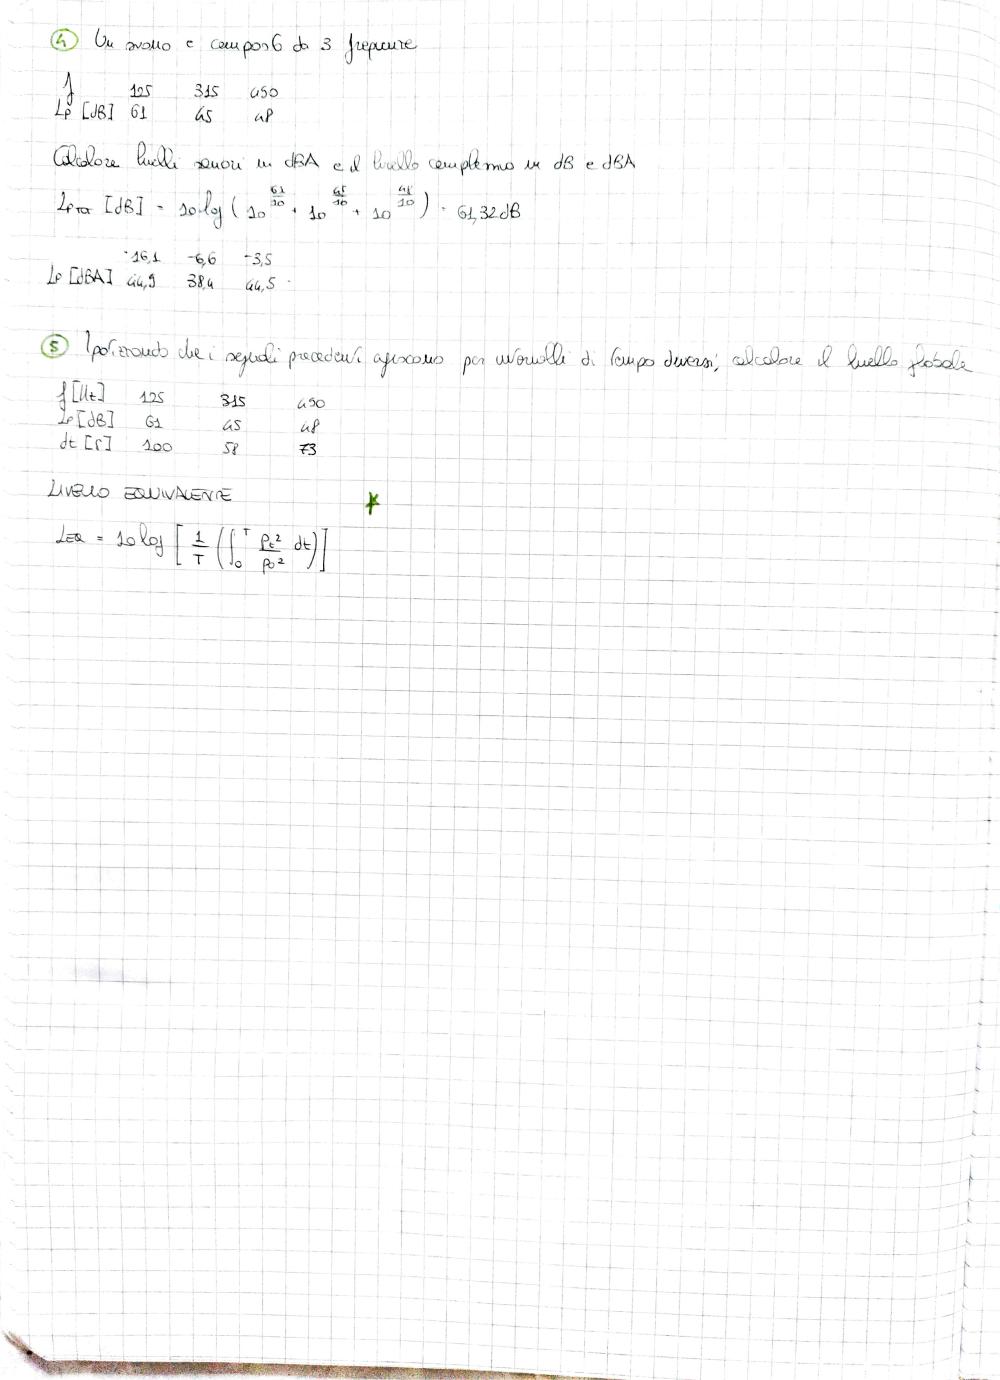 4 Un suono è composto da 3 frequenze
f 125 315 450
Lp [dB] 61 45 48
Calcolare livelli sonori in dBA e il livello complessivo in dB e dBA
LpTOT [dB] = 10 log ( 10^61/10 + 10^45/10 + 10^48/10 ) = 61,32 dB
-16,1 -6,6 -3,5
Lp [dBA] 44,9 38,4 44,5
5 Ipotizzando che i segnali precedenti agiscano per intervalli di tempo diversi, calcolare il livello globale
f [Hz] 125 315 450
Lp [dB] 61 45 48
dt [s] 100 58 73
LIVELLO EQUIVALENTE
LEQ = 10 log [ 1/T ( ∫₀ᵀ pt²/p0² dt ) ]